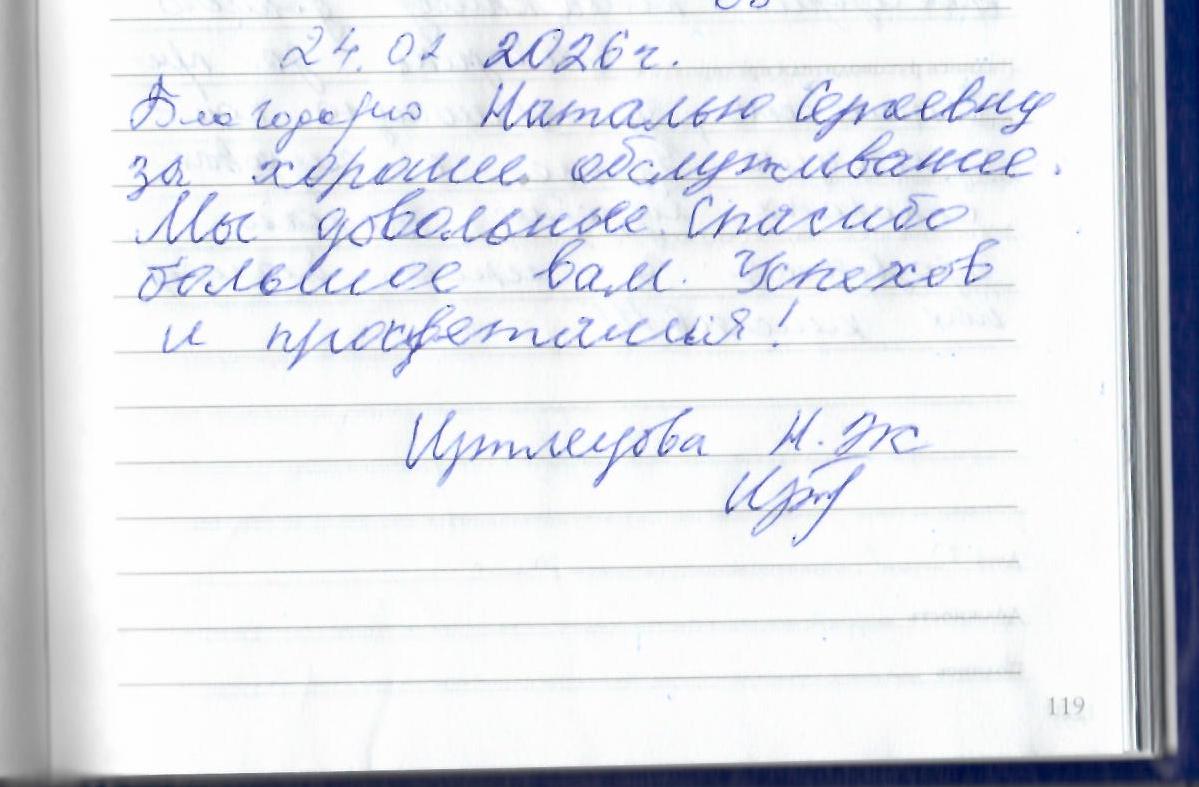 24.01 2026г.
Благодарю Наталью Сергеевну
за хорошее обслуживание.
Мы довольные. Спасибо
большое вам. Успехов
и процветания!
Н. Ж
119